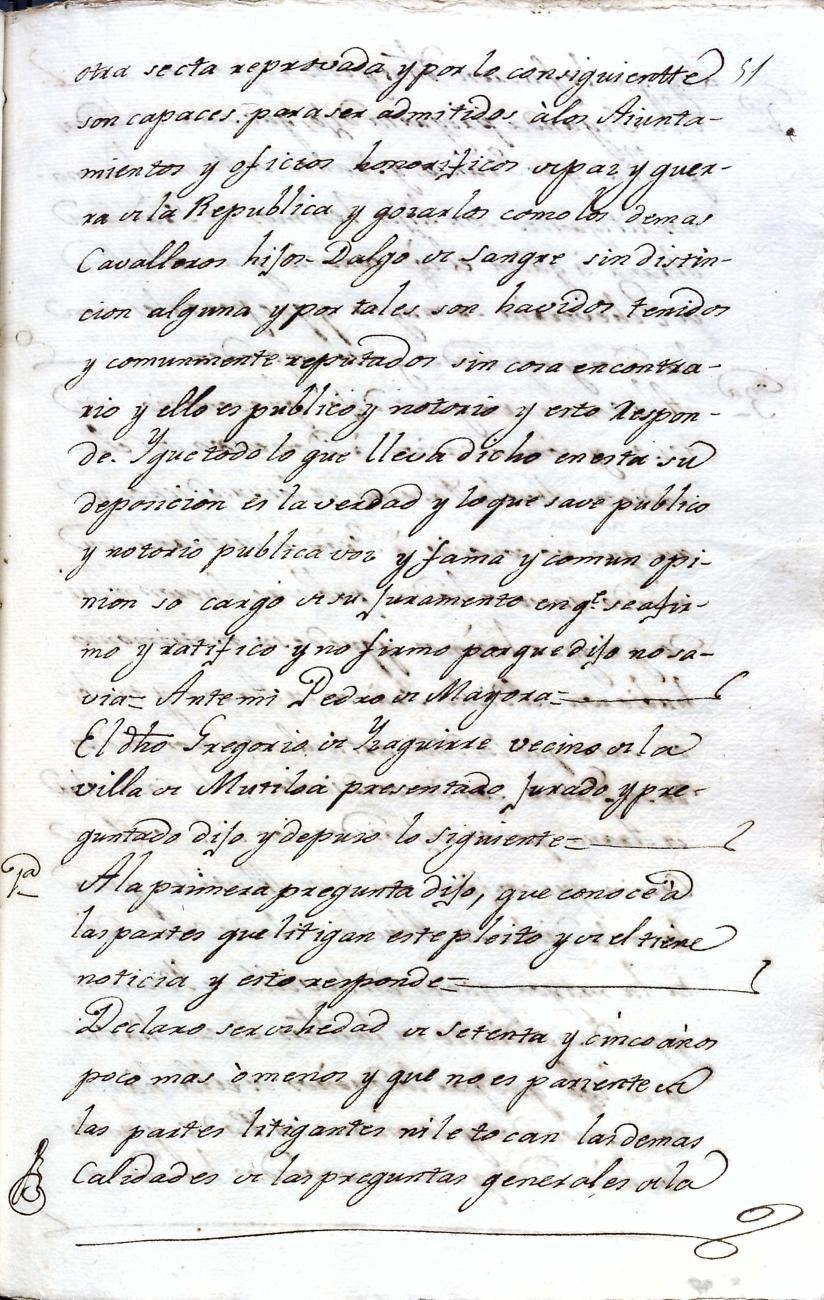 otra secta reprovada y por lo consiguientte 51
son capaces para ser admitidos à los Aiunta-
mientos y oficios honorificos de paz y guer-
ra de la Republica y gozarlos como los demas
Cavalleros hijos-Dalgo de sangre sin distin-
cion alguna y por tales son havidos tenidos
y comunmente reputados sin cosa en contra-
rio y ello es publico y notorio y esto Respon-
de. Y que todo lo que lleva dicho en esta su
deposicion es la verdad y lo que save publico
y notorio publica voz y fama y comun opi-
nion so cargo de su Juramento en q.e se afir-
mo y ratifico y no firmo porque dijo no sa-
via= Ante mi Pedro de Mayora=
El dho Gregorio de Yzaguirre vecino de la
villa de Mutiloa presentado Jurado y pre-
guntado dijo y depuso lo siguiente=
1a A la primera pregunta dijo, que conoce à
las partes que litigan este pleito y de el tiene
noticia y esto responde=
Declaro ser de hedad de setenta y cinco años
poco mas ò menos y que no es pariente de
las partes litigantes ni le tocan las demas
Calidades de las preguntas generales de la